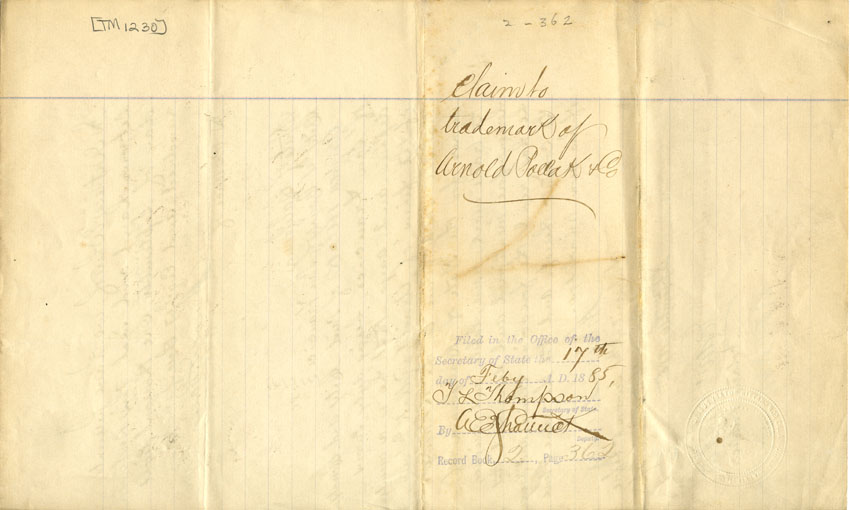 [TM 1230]
2 - 362
Claim to
trademark of
Arnold Pollak & Co
Filed in the Office of the
Secretary of State the 17th
day of Feby A. D. 1885,
T L Thompson
Secretary of State.
By
Deputy.
Record Book 2, Page 362